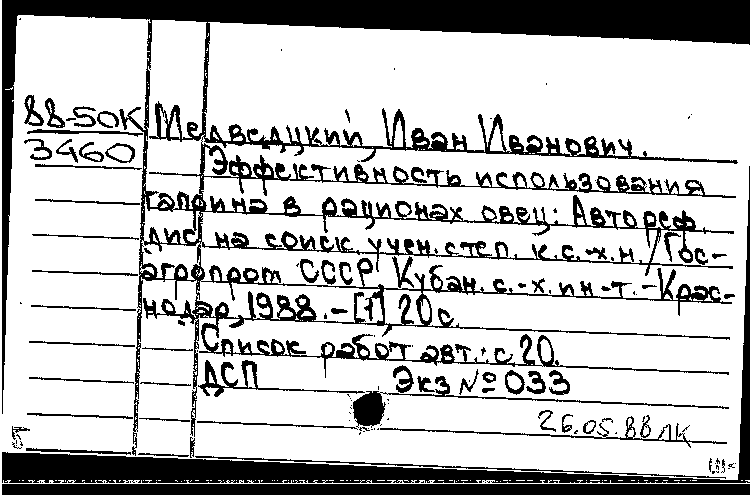 88-50К Медведцкий, Иван Иванович.
3460 Эффективность использования
гаприна в рационах овец: Автореф.
дис. на соиск. учен. степ. к.с.-х.н. / Гос-
агропром СССР, Кубан. с.-х. ин-т. - Крас-
нодар, 1988. - [1], 20 с.
Список работ авт.: с. 20.
ДСП Экз № 033
26.05.88 ЛК
Б